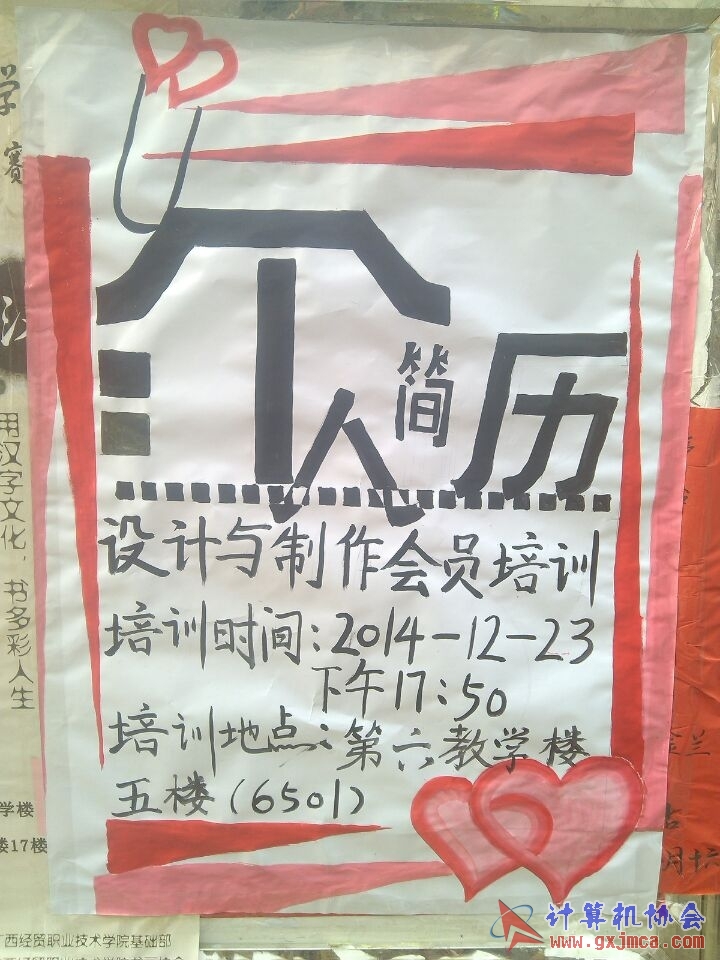 个人简历
设计与制作会员培训
培训时间:2014-12-23
下午17:50
培训地点:第六教学楼
五楼(6501)
学
赛
用汉字文化,书多彩人生
学楼
楼17楼
西经贸职业技术学院基础部
金兰
计算机协会
www.gxjmca.com